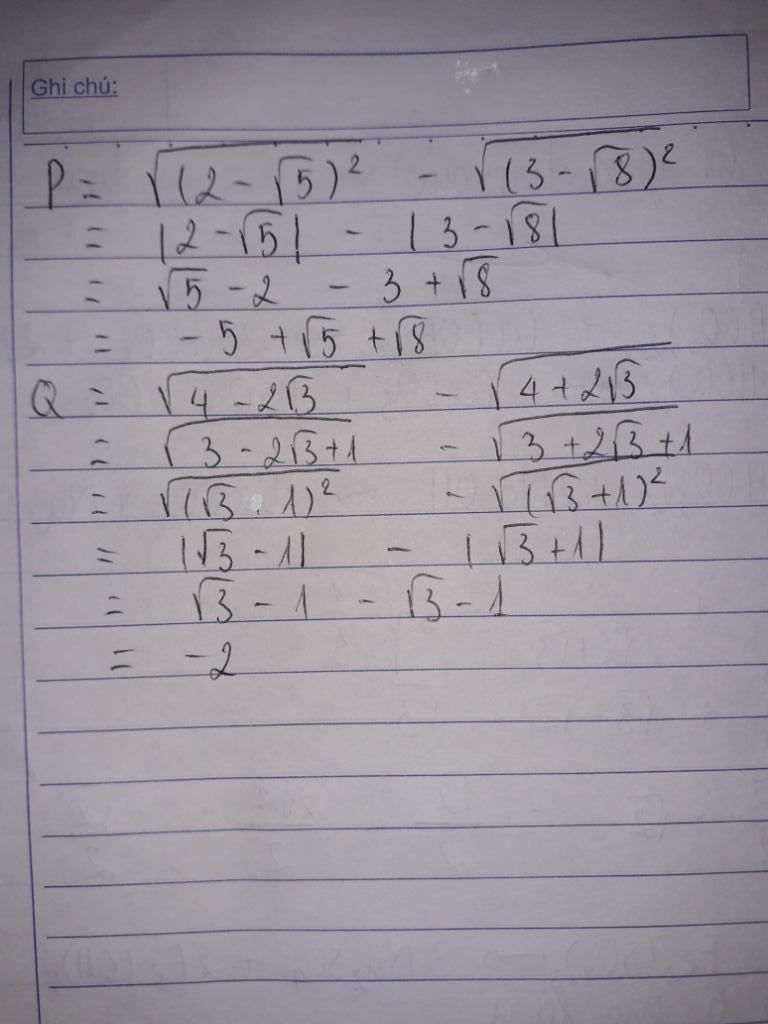 Ghi chú:
P = √(2 - √5)² - √(3 - √8)²
= |2 - √5| - |3 - √8|
= √5 - 2 - 3 + √8
= - 5 + √5 + √8
Q = √4 - 2√3 - √4 + 2√3
= √3 - 2√3 + 1 - √3 + 2√3 + 1
= √(√3 · 1)² - √(√3 + 1)²
= |√3 - 1| - |√3 + 1|
= √3 - 1 - √3 - 1
= - 2